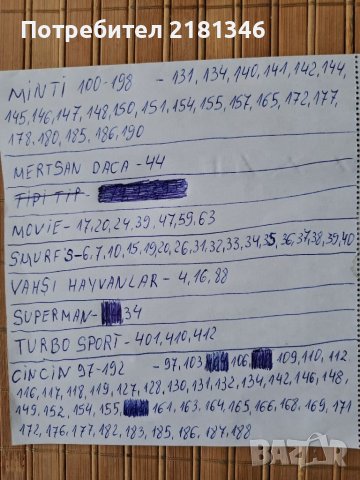 Потребител 2181346
MINTI 100-198 - 131, 134, 140, 141, 142, 144,
145, 146, 147, 148, 150, 151, 154, 155, 157, 165, 172, 177,
178, 180, 185, 186, 190
MERTSAN DACA - 44
TIPI TIP -
MOVIE - 17, 20, 24, 39, 47, 59, 63
SMURFS - 6, 7, 10, 15, 19, 20, 26, 31, 32, 33, 34, 35, 36, 37, 38, 39, 40
VAHŞI HAYVANLAR - 4, 16, 88
SUPERMAN - 34
TURBO SPORT - 401, 410, 412
CINCIN 97-192 - 97, 103, 106, 109, 110, 112
116, 117, 118, 119, 127, 128, 130, 131, 132, 134, 142, 146, 148,
149, 152, 154, 155, 161, 163, 164, 165, 166, 168, 169, 171
172, 176, 177, 182, 183, 185, 186, 187, 188
BAZAR